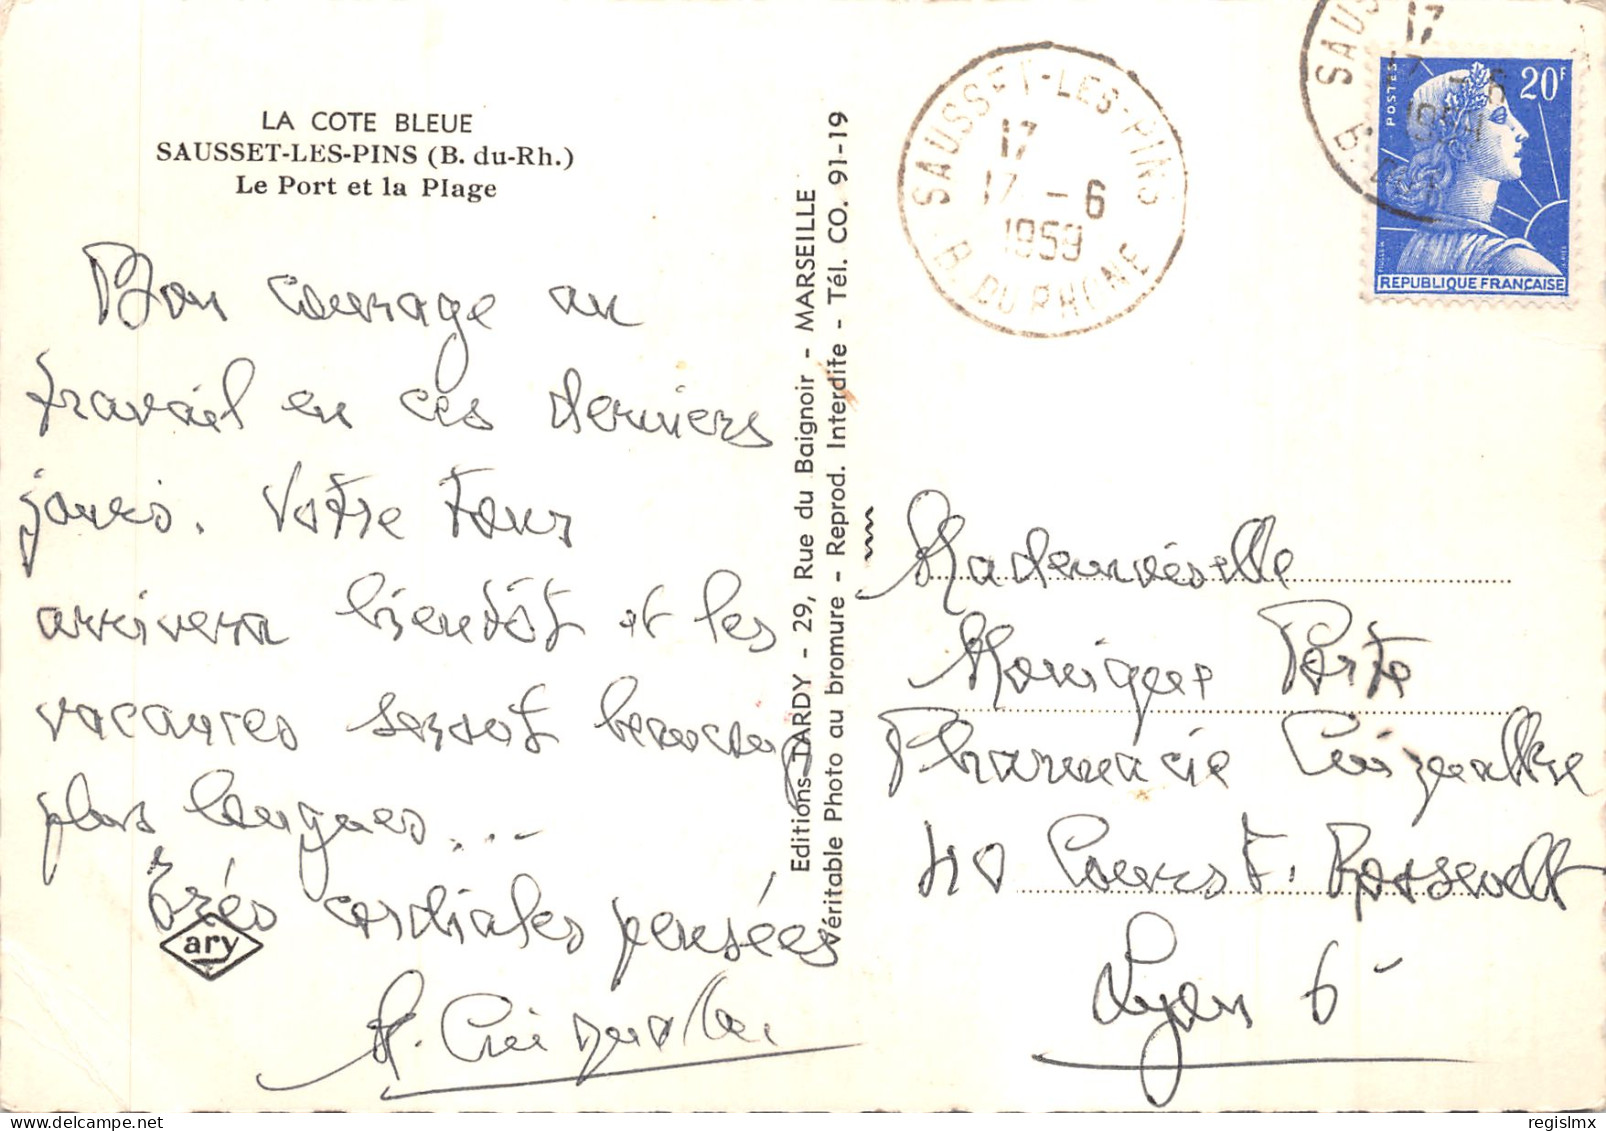 LA COTE BLEUE
SAUSSET-LES-PINS (B. du-Rh.)
Le Port et la Plage
Bon courage au
travail en ces derniers
jours. Votre tour
arrivera bientôt et les
vacances seront beaucoup
plus longues...
Très cordiales pensées
ary
Editions TARDY - 29, Rue du Baignoir - MARSEILLE
Véritable Photo au bromure - Reprod. Interdite - Tél. CO. 91-19
SAUSSET-LES-PINS
17
17 - 6
1959
B. DU RHONE
SAUS
17
17 - 6
POSTES
20F
REPUBLIQUE FRANÇAISE
Mademoiselle
Monique Porte
Pharmacie
40 Cours F. Roosevelt
Lyon 6
www.delcampe.net
regislmx